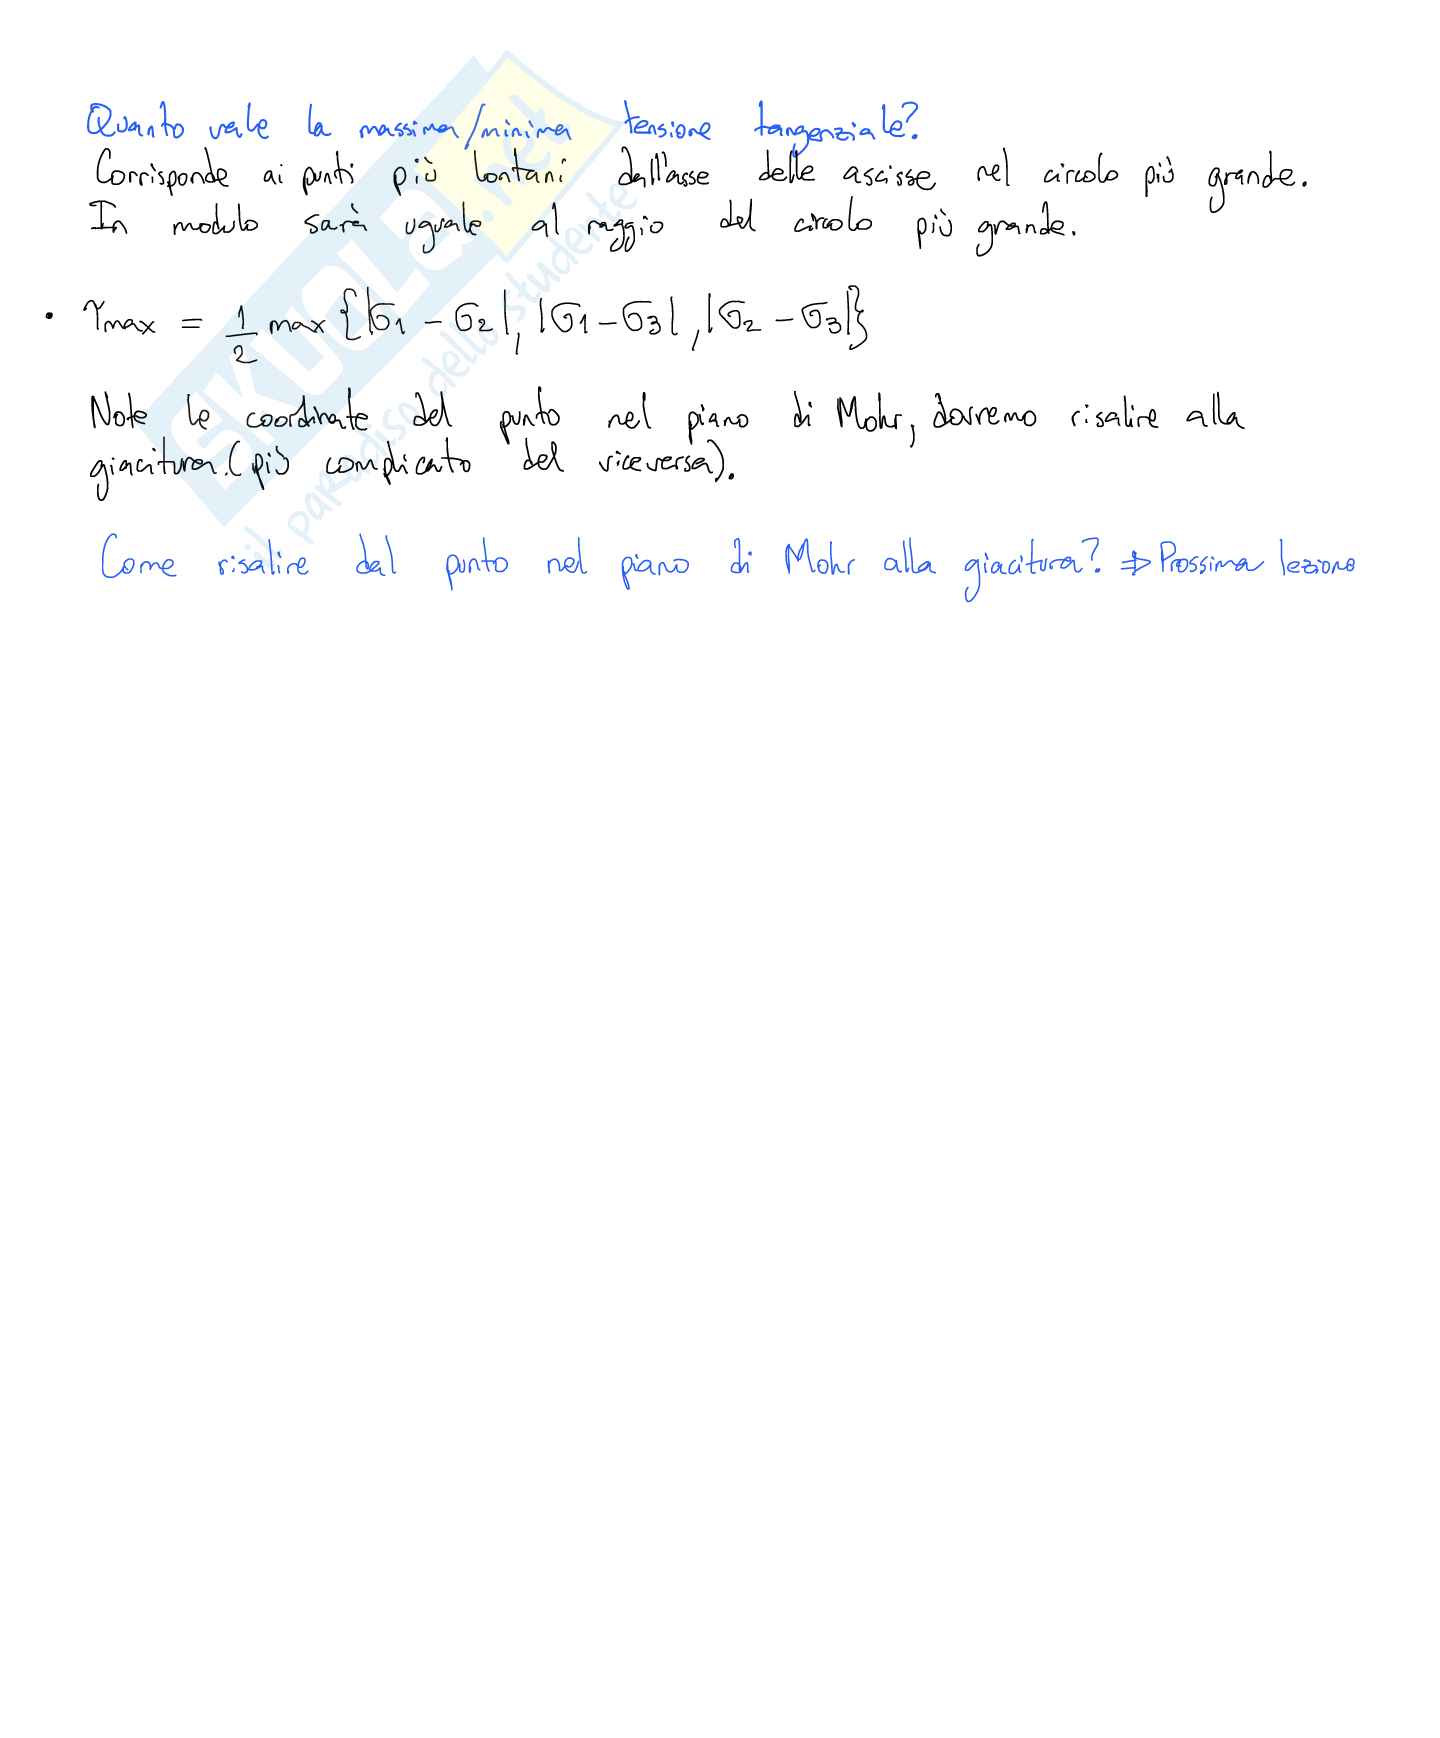 Quanto vale la massima/minima tensione tangenziale?
Corrisponde ai punti più lontani dall'asse delle ascisse nel circolo più grande.
In modulo sarà uguale al raggio del circolo più grande.
• τmax = 1/2 max{|σ1 - σ2|, |σ1 - σ3|, |σ2 - σ3|}
Note le coordinate del punto nel piano di Mohr, dovremo risalire alla
giacitura. (più complicato del viceversa).
Come risalire dal punto nel piano di Mohr alla giacitura? ⇒ Prossima lezione
SKUOLA.net
il paradiso dello studente